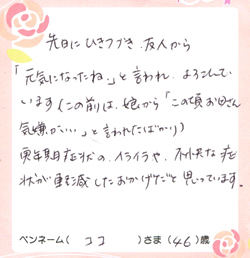 先日にひきつづき、友人から
「元気になったね。」と言われ、よろこんで
います(この前は、娘から「この頃お母さん
気嫌がいい。」と言われたばかり)
更年期症状の、イライラや、不快な症
状が軽減したおかげだと思っています。
ペンネーム( ココ )さま(46)歳